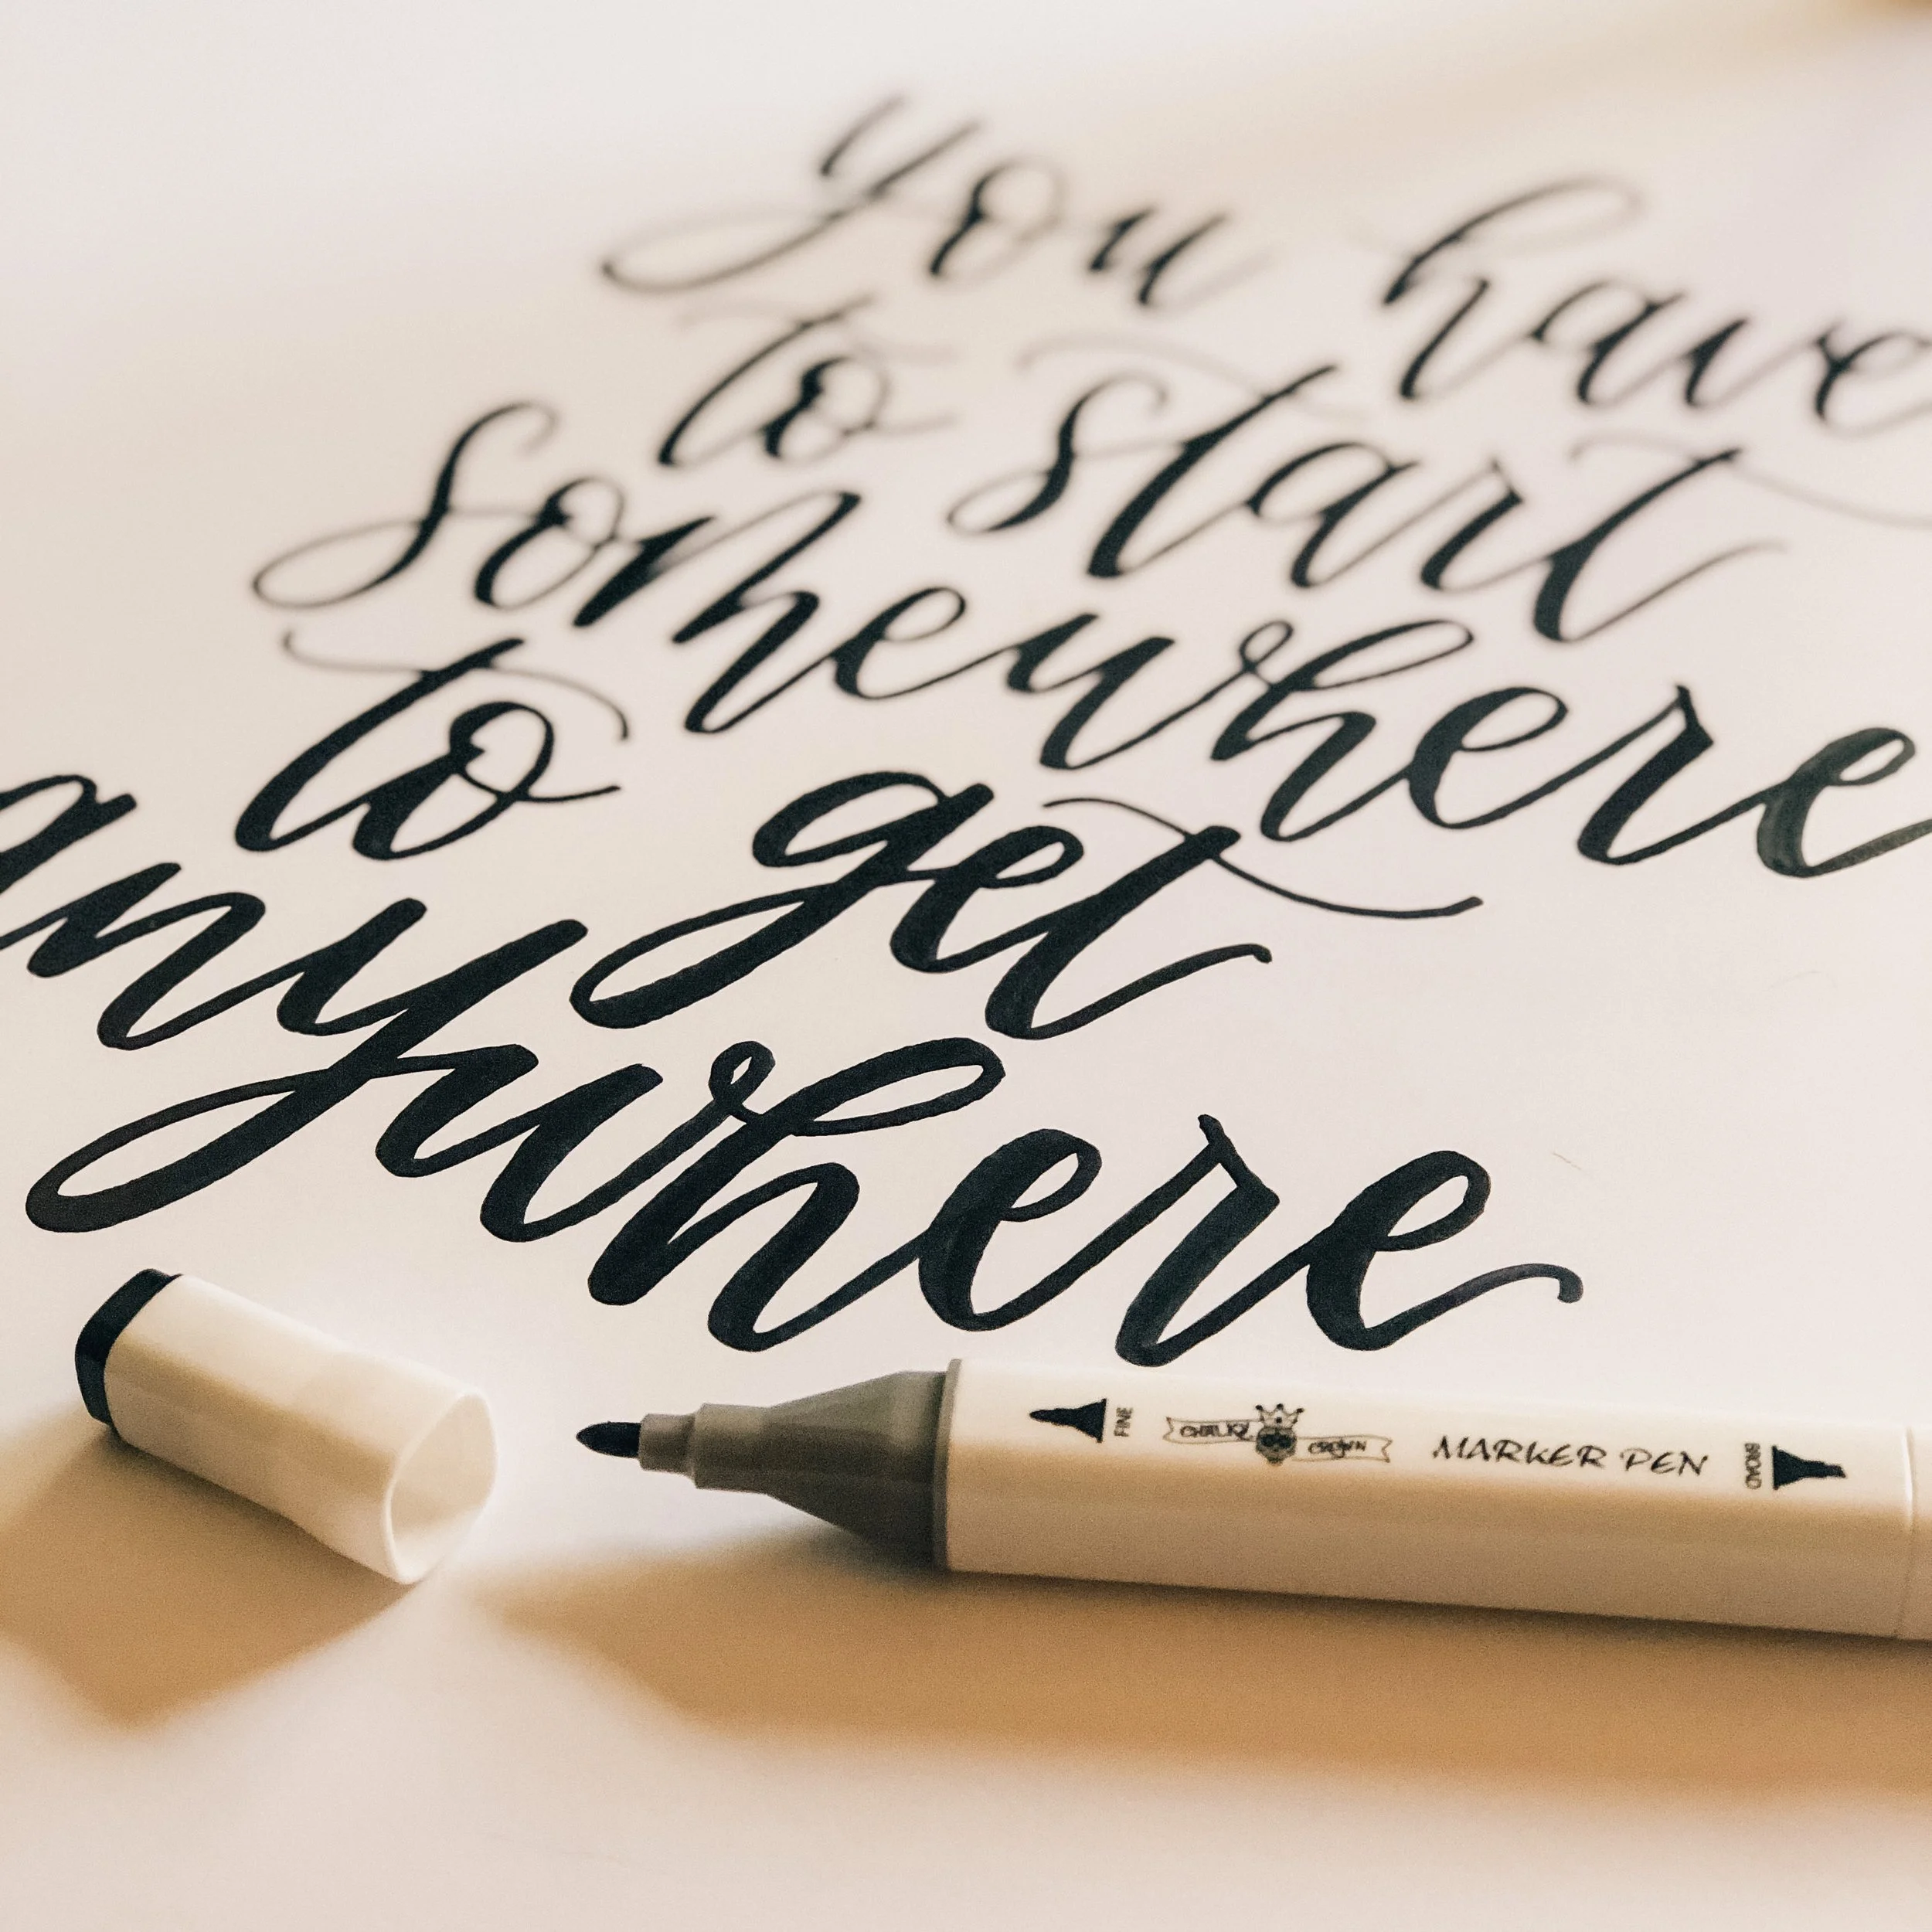 you have
to start
somewhere
to get
anywhere
FINE
CHALKY CROWN
MARKER PEN
BROAD